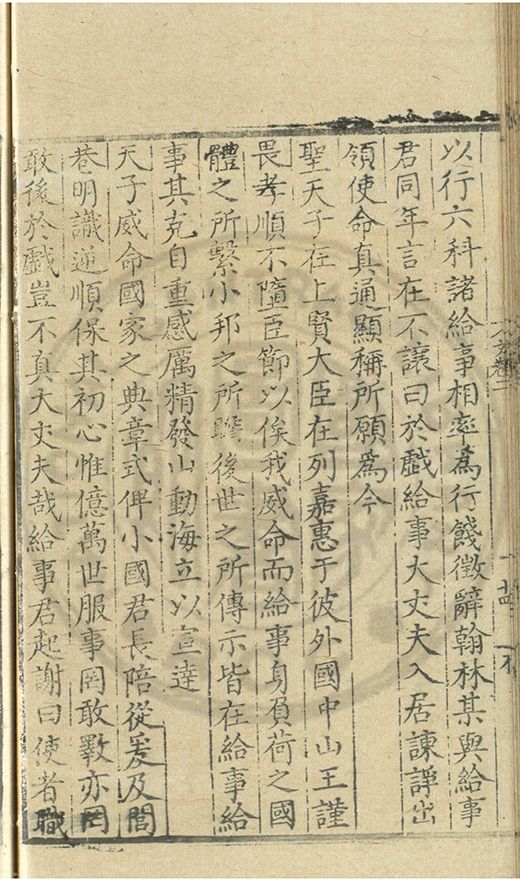 以行六科諸給事相率爲行餞徵辭翰林某與給事
君同年言在不讓曰於戲給事大丈夫入居諫諍出
領使命真通顯稱所願爲今
聖天子在上賢大臣在列嘉惠于彼外國中山王謹
畏孝順不墮臣節以俟我威命而給事身負荷之國
體之所繫小邦之所瞻後世之所傳示皆在給事給
事其克自重感厲精發山動海立以宣達
天子威命國家之典章式俾小國君長陪從爰及閭
巷明識逆順保其初心惟億萬世服事罔敢斁亦罔
敢後於戲豈不真大丈夫哉給事君起謝曰使者職